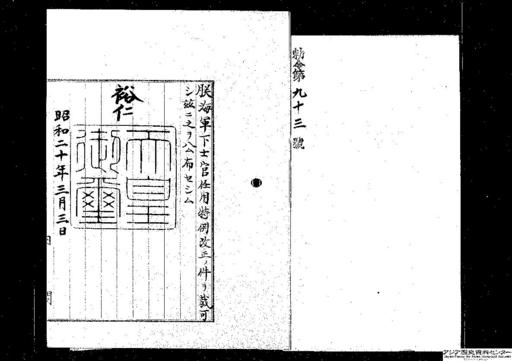 勅令第九十三號
朕海軍下士官任用特例改正ノ件ヲ裁可
シ茲ニ之ヲ公布セシム
裕仁
天皇御璽
昭和二十年三月三日
内閣
アジア歴史資料センター